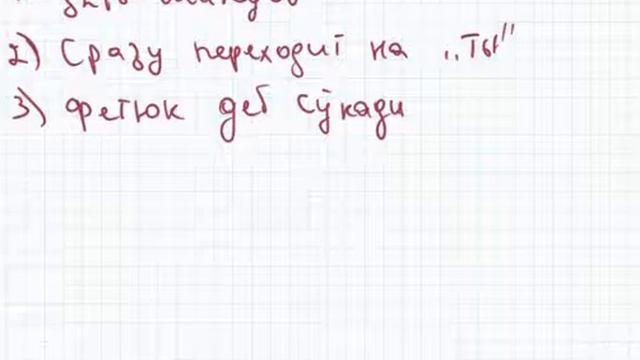 2) Сразу переходит на „ты"
3) Фетюк деб сўкади